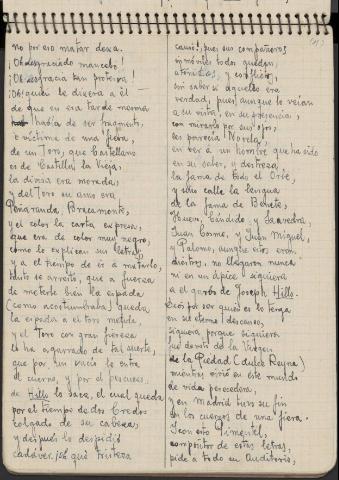 no por eso matar dexa.
¡Oh desgraciado mancebo!
¡Oh desgracia tan proterva!
¡Oh! quien le dixera a él
de que en era tarde mesma
había de ser fragmento,
e víctima de una fiera,
de un Toro, que Castellano
es de Castilla la Vieja,
la divisa era morada,
y del Toro su amo era
Peñaranda, Bracamonte,
y el color la carta expresa,
que era de color muy negro,
como lo explican sus letras,
y a el tiempo de ir a matarlo,
tanto se arrestó, que a fuerza
de meterle bien la espada
(como acostumbraba) queda
la espada a el toro metida
y el Toro con gran fiereza
le ha agarrado de tal suerte,
que por un vacío le entra
el cuerno, y por el pescuezo
de Hillo lo saca, el cual queda
por el tiempo de dos Credos
colgado de su cabeza,
y después lo despidió
cadáver. ¡A qué tristeza
causó! pues sus compañeros
inmóviles todos quedan,
atónitos, y conflictos,
sin saber si aquello era
verdad, pues aunque lo veían
a su vista, en su presencia,
con mirarlo por sus ojos,
les parecía Novela,
en ver a un hombre que ha sido
en su saber, y destreza
la fama de todo el Orbe
y sino calle la lengua
de la fama de Benete,
Juan Cándido, y Saavedra,
Juan Corme, y Juan Miguel,
y Palomo, aunque estos eran
diestros, no llegaron nunca
ni en un ápice siquiera
a el garbo de Joseph Hillo.
Dios por ser quien es lo tenga
en su eterno descanso,
siquiera porque siquiera
fué devoto de la Virgen
de la Piedad (dulce Reyna)
mientras vivió en este mundo
de vida perecedera
y en Madrid tuvo su fin
en los cuernos de una fiera.
Y con esto Pimentel,
compositor de estas letras,
pide a todo su Auditorio,